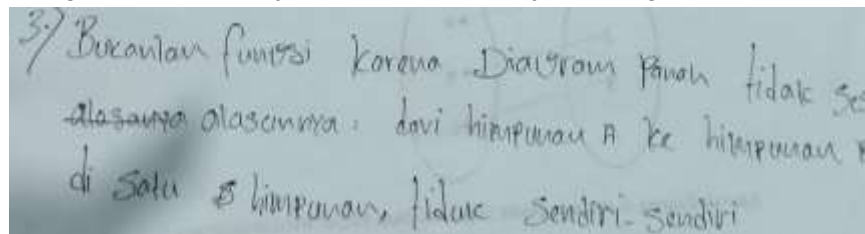 3.) Bukanlah fungsi karena Diagram Panah tidak ses
alasanya alasannya : dari himpunan A ke himpunan
di satu himpunan, tidak sendiri-sendiri